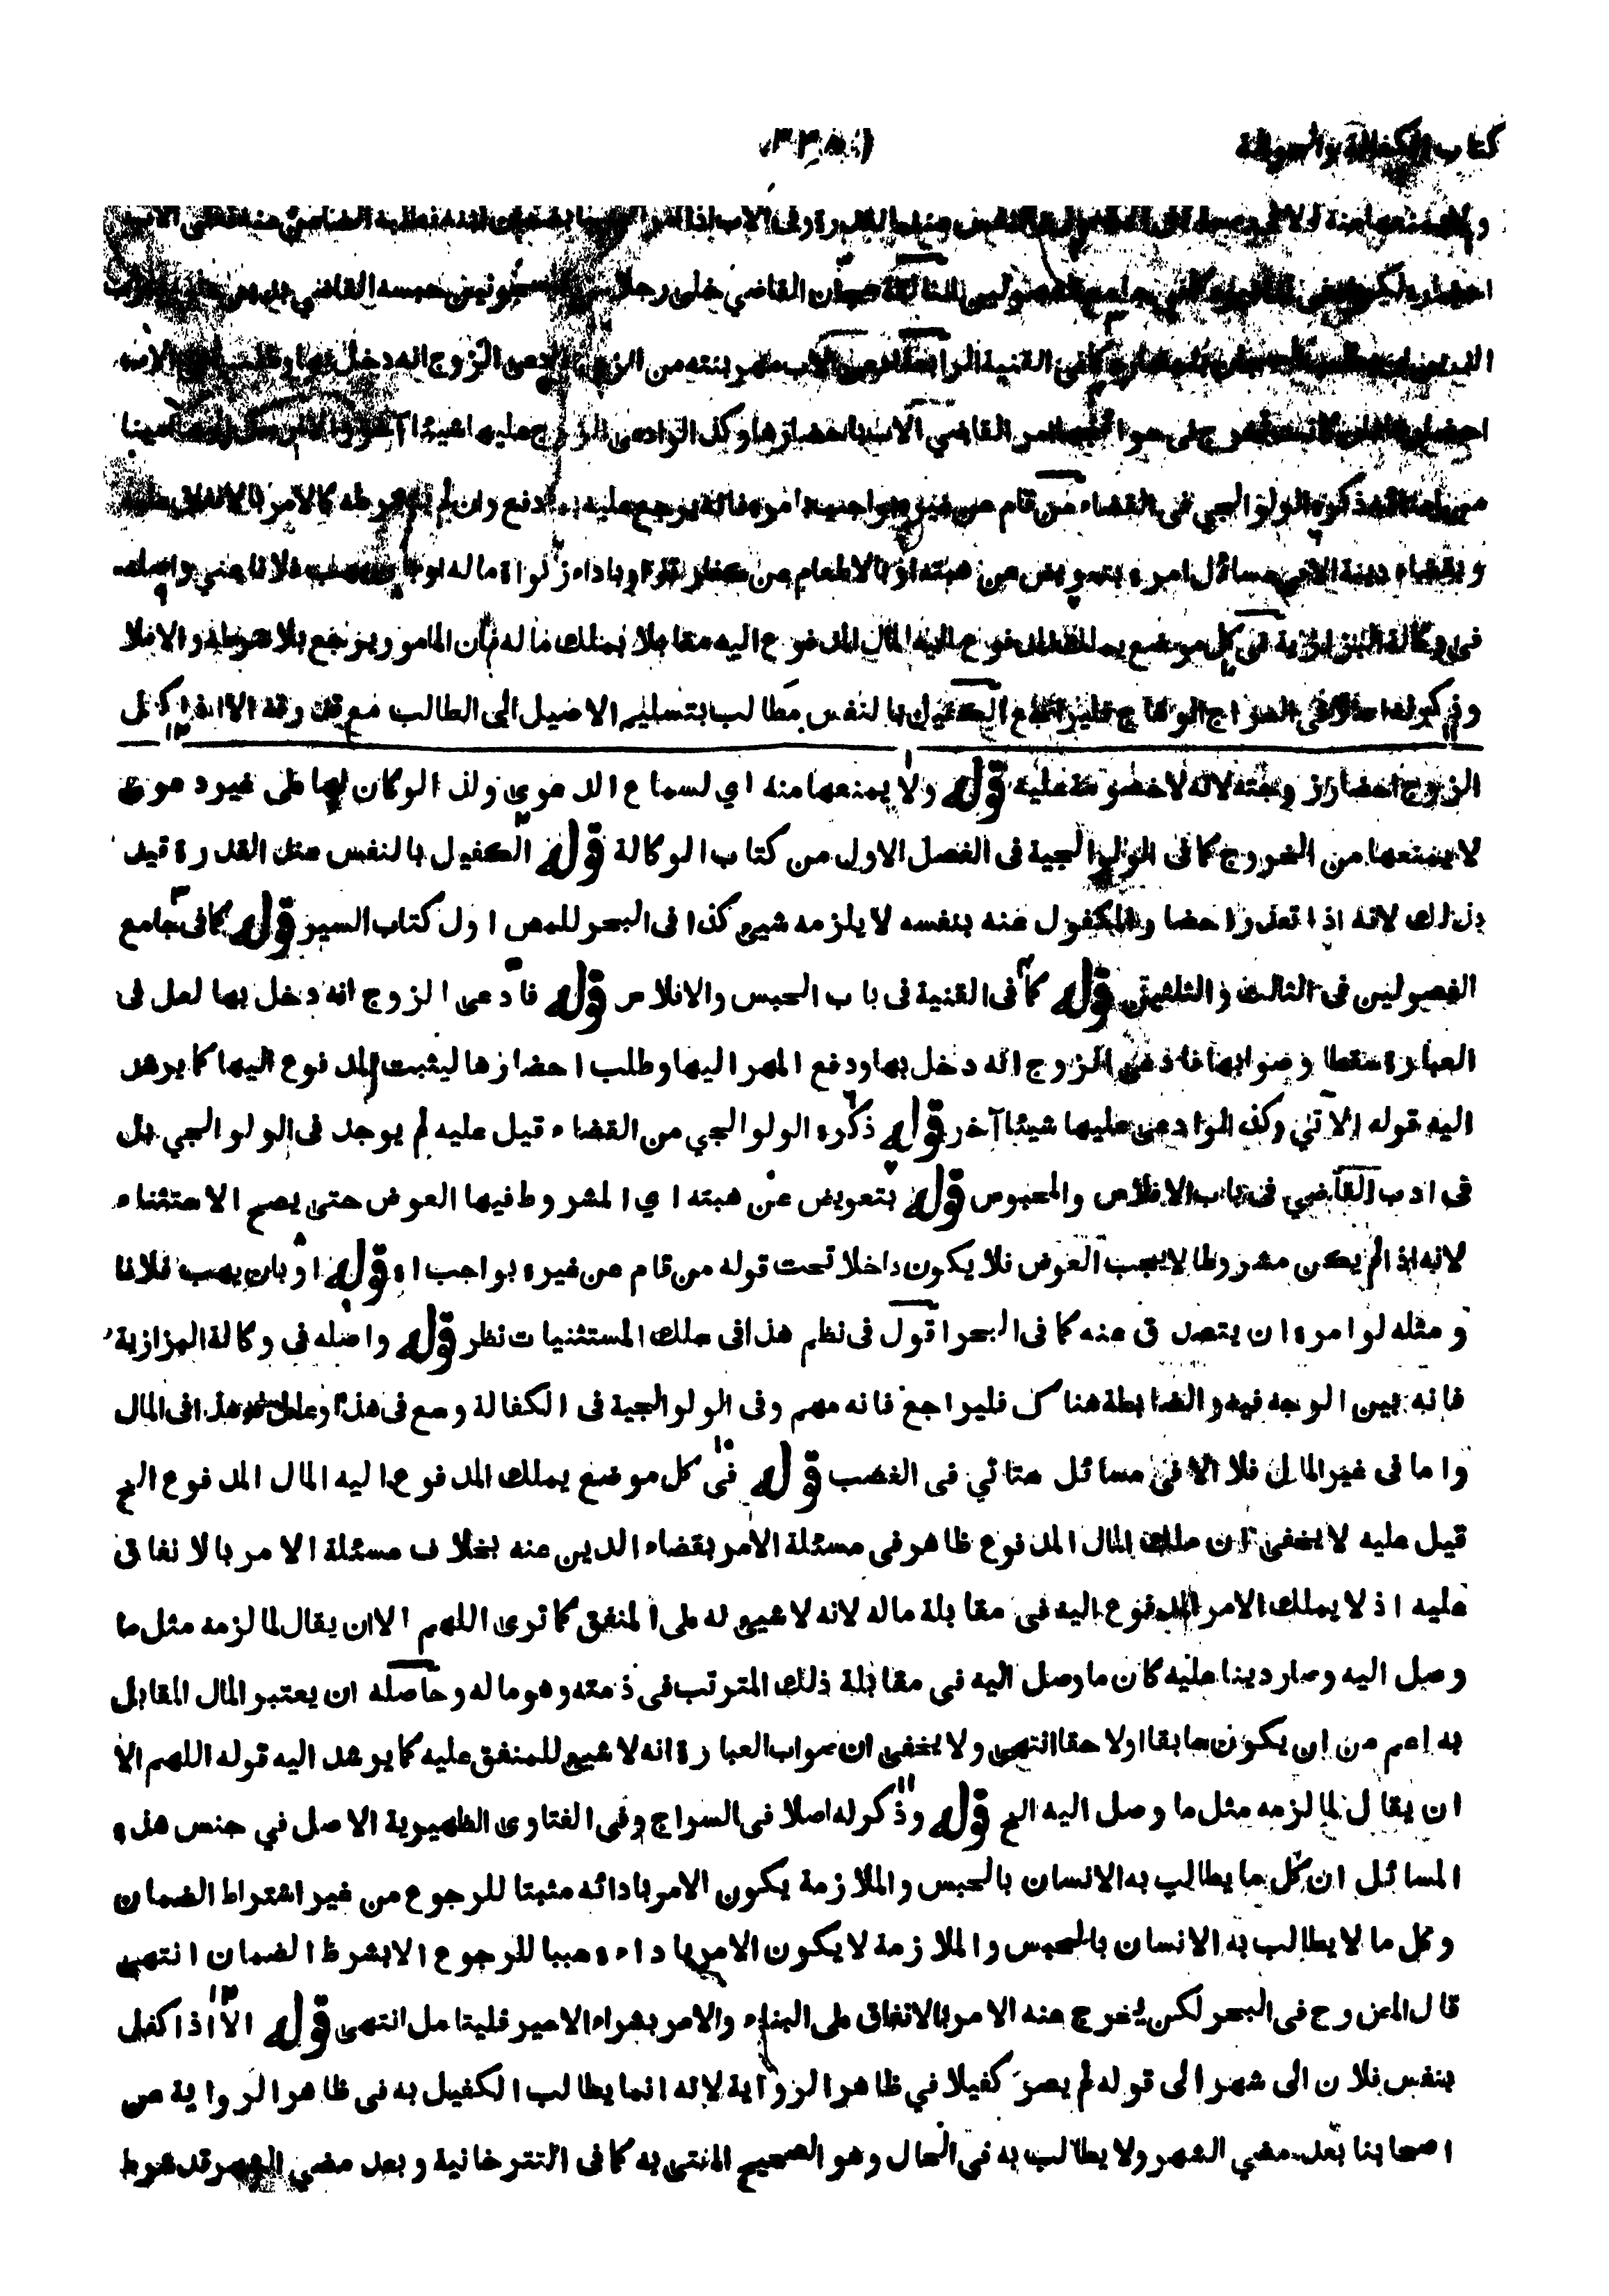 كتاب الكفالة والحوالة
ولا يمنعها منه ولا الكفيل بالنفس عند القدرة وفى الاب اذا امر
احضاره لكونه كما فى جامع الفصولين الثالثة سجان القاضي خلى رجلا من المسجونين حبسه القاضي بدين عليه
كما فى القنية الرابعة ادعى الاب مهر بنته من الزوج فادعى الزوج انه دخل بها وطلب من الاب
احضارها فان كانت تخرج فى حوائجها امر القاضي الاب باحضارها وكذا لو ادعى الزوج عليها شيئا آخر
ذكره الولوالجي فى القضاء من قام عن غيره بواجب بامره فانه يرجع عليه بما دفع وان لم يشترطه كالامر بالانفاق عليه
وبقضاء دينه الا فى مسائل امره بتعويض عن هبته او بالاطعام عن كفارته او باداء زكوة ماله او بان يهب فلانا عني واصله
فى وكالة البزازية فى كل موضع يملك المدفوع اليه المال المدفوع اليه مقابلا بملك ماله فان المامور يرجع بلا شرط والا فلا
وذكر له اصلا فى السراج الوهاج فليراجع الكفيل بالنفس مطالب بتسليم الاصيل الى الطالب مع قدرته الا اذا كفل
الزوج احضار زوجته لانه لاخصومة عليه قوله ولا يمنعها منه اي لسماع الدعوى ولذا لو كان لها على غيره دعوى
لا يمنعها من الخروج كما فى الولوالجية فى الفصل الاول من كتاب الوكالة قوله الكفيل بالنفس عند القدرة قيد
بذلك لانه اذا تعذر احضار المكفول عنه بنفسه لا يلزمه شيئ كذا فى البحر للمص اول كتاب السير قوله كما فى جامع
الفصولين فى الثالث والثلثين قوله كما فى القنية فى باب الحبس والافلاس قوله فادعى الزوج انه دخل بها لعل فى
العبارة سقطا وصوابها فادعى الزوج انه دخل بها ودفع المهر اليها وطلب احضارها ليثبت المدفوع اليها كما يرشد
اليه قوله الآتي وكذا لو ادعى عليها شيئا آخر قوله ذكره الولوالجي من القضاء قيل عليه لم يوجد فى الولوالجي بل
فى ادب القاضي فى باب الافلاس والمحبوس قوله بتعويض عن هبته اي المشروط فيها العوض حتى يصح الاستثناء
لانه اذا لم يكن مشروطا لا يجب العوض فلا يكون داخلا تحت قوله من قام عن غيره بواجب اه قوله او بان يهب فلانا
ومثله لو امره ان يتصدق عنه كما فى البحر اقول فى نظم هذا فى سلك المستثنيات نظر قوله واصله فى وكالة البزازية
فانه بين الوجه فيه والضابطة هناك فليراجع فانه مهم وفى الولوالجية فى الكفالة وضع فى هذا هذا فى المال
واما فى غير المال فلا الا فى مسائل ستأتي فى الغصب قوله فى كل موضع يملك المدفوع اليه المال المدفوع الخ
قيل عليه لا يخفى ان ملك المال المدفوع ظاهر فى مسئلة الامر بقضاء الدين عنه بخلاف مسئلة الامر بالانفاق
عليه اذ لا يملك الامر المدفوع اليه فى مقابلة ماله لانه لا شيئ له على المنفق كما ترى اللهم الا ان يقال لما لزمه مثل ما
وصل اليه وصار دينا عليه كان ما وصل اليه فى مقابلة ذلك المترتب فى ذمته وهو ماله وحاصله ان يعتبر المال المقابل
به اعم من ان يكون سابقا او لاحقا انتهى ولا يخفى ان صواب العبارة انه لا شيئ للمنفق عليه كما يرشد اليه قوله اللهم الا
ان يقال لما لزمه مثل ما وصل اليه الخ قوله وذكر له اصلا فى السراج وفى الفتاوى الظهيرية الاصل في جنس هذه
المسائل ان كل ما يطالب به الانسان بالحبس والملازمة يكون الامر بادائه مثبتا للرجوع من غير اشتراط الضمان
وكل ما لا يطالب به الانسان بالحبس والملازمة لا يكون الامر باداءه سببا للرجوع الا بشرط الضمان انتهى
قال المص رح فى البحر لكن يخرج عنه الامر بالانفاق على البناء والامر بشراء الاسير فليتامل انتهى قوله الا اذا كفل
بنفس فلان الى شهر الى قوله لم يصر كفيلا في ظاهر الرواية لانه انما يطالب الكفيل به فى ظاهر الرواية عن
اصحابنا بعد مضي الشهر ولا يطالب به فى الحال وهو الصحيح المفتى به كما فى التترخانية وبعد مضي الشهر قد شرط